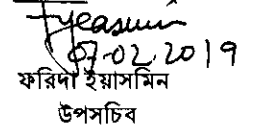 Fyeasmin
07.02.2019
ফরিদা ইয়াসমিন
উপসচিব